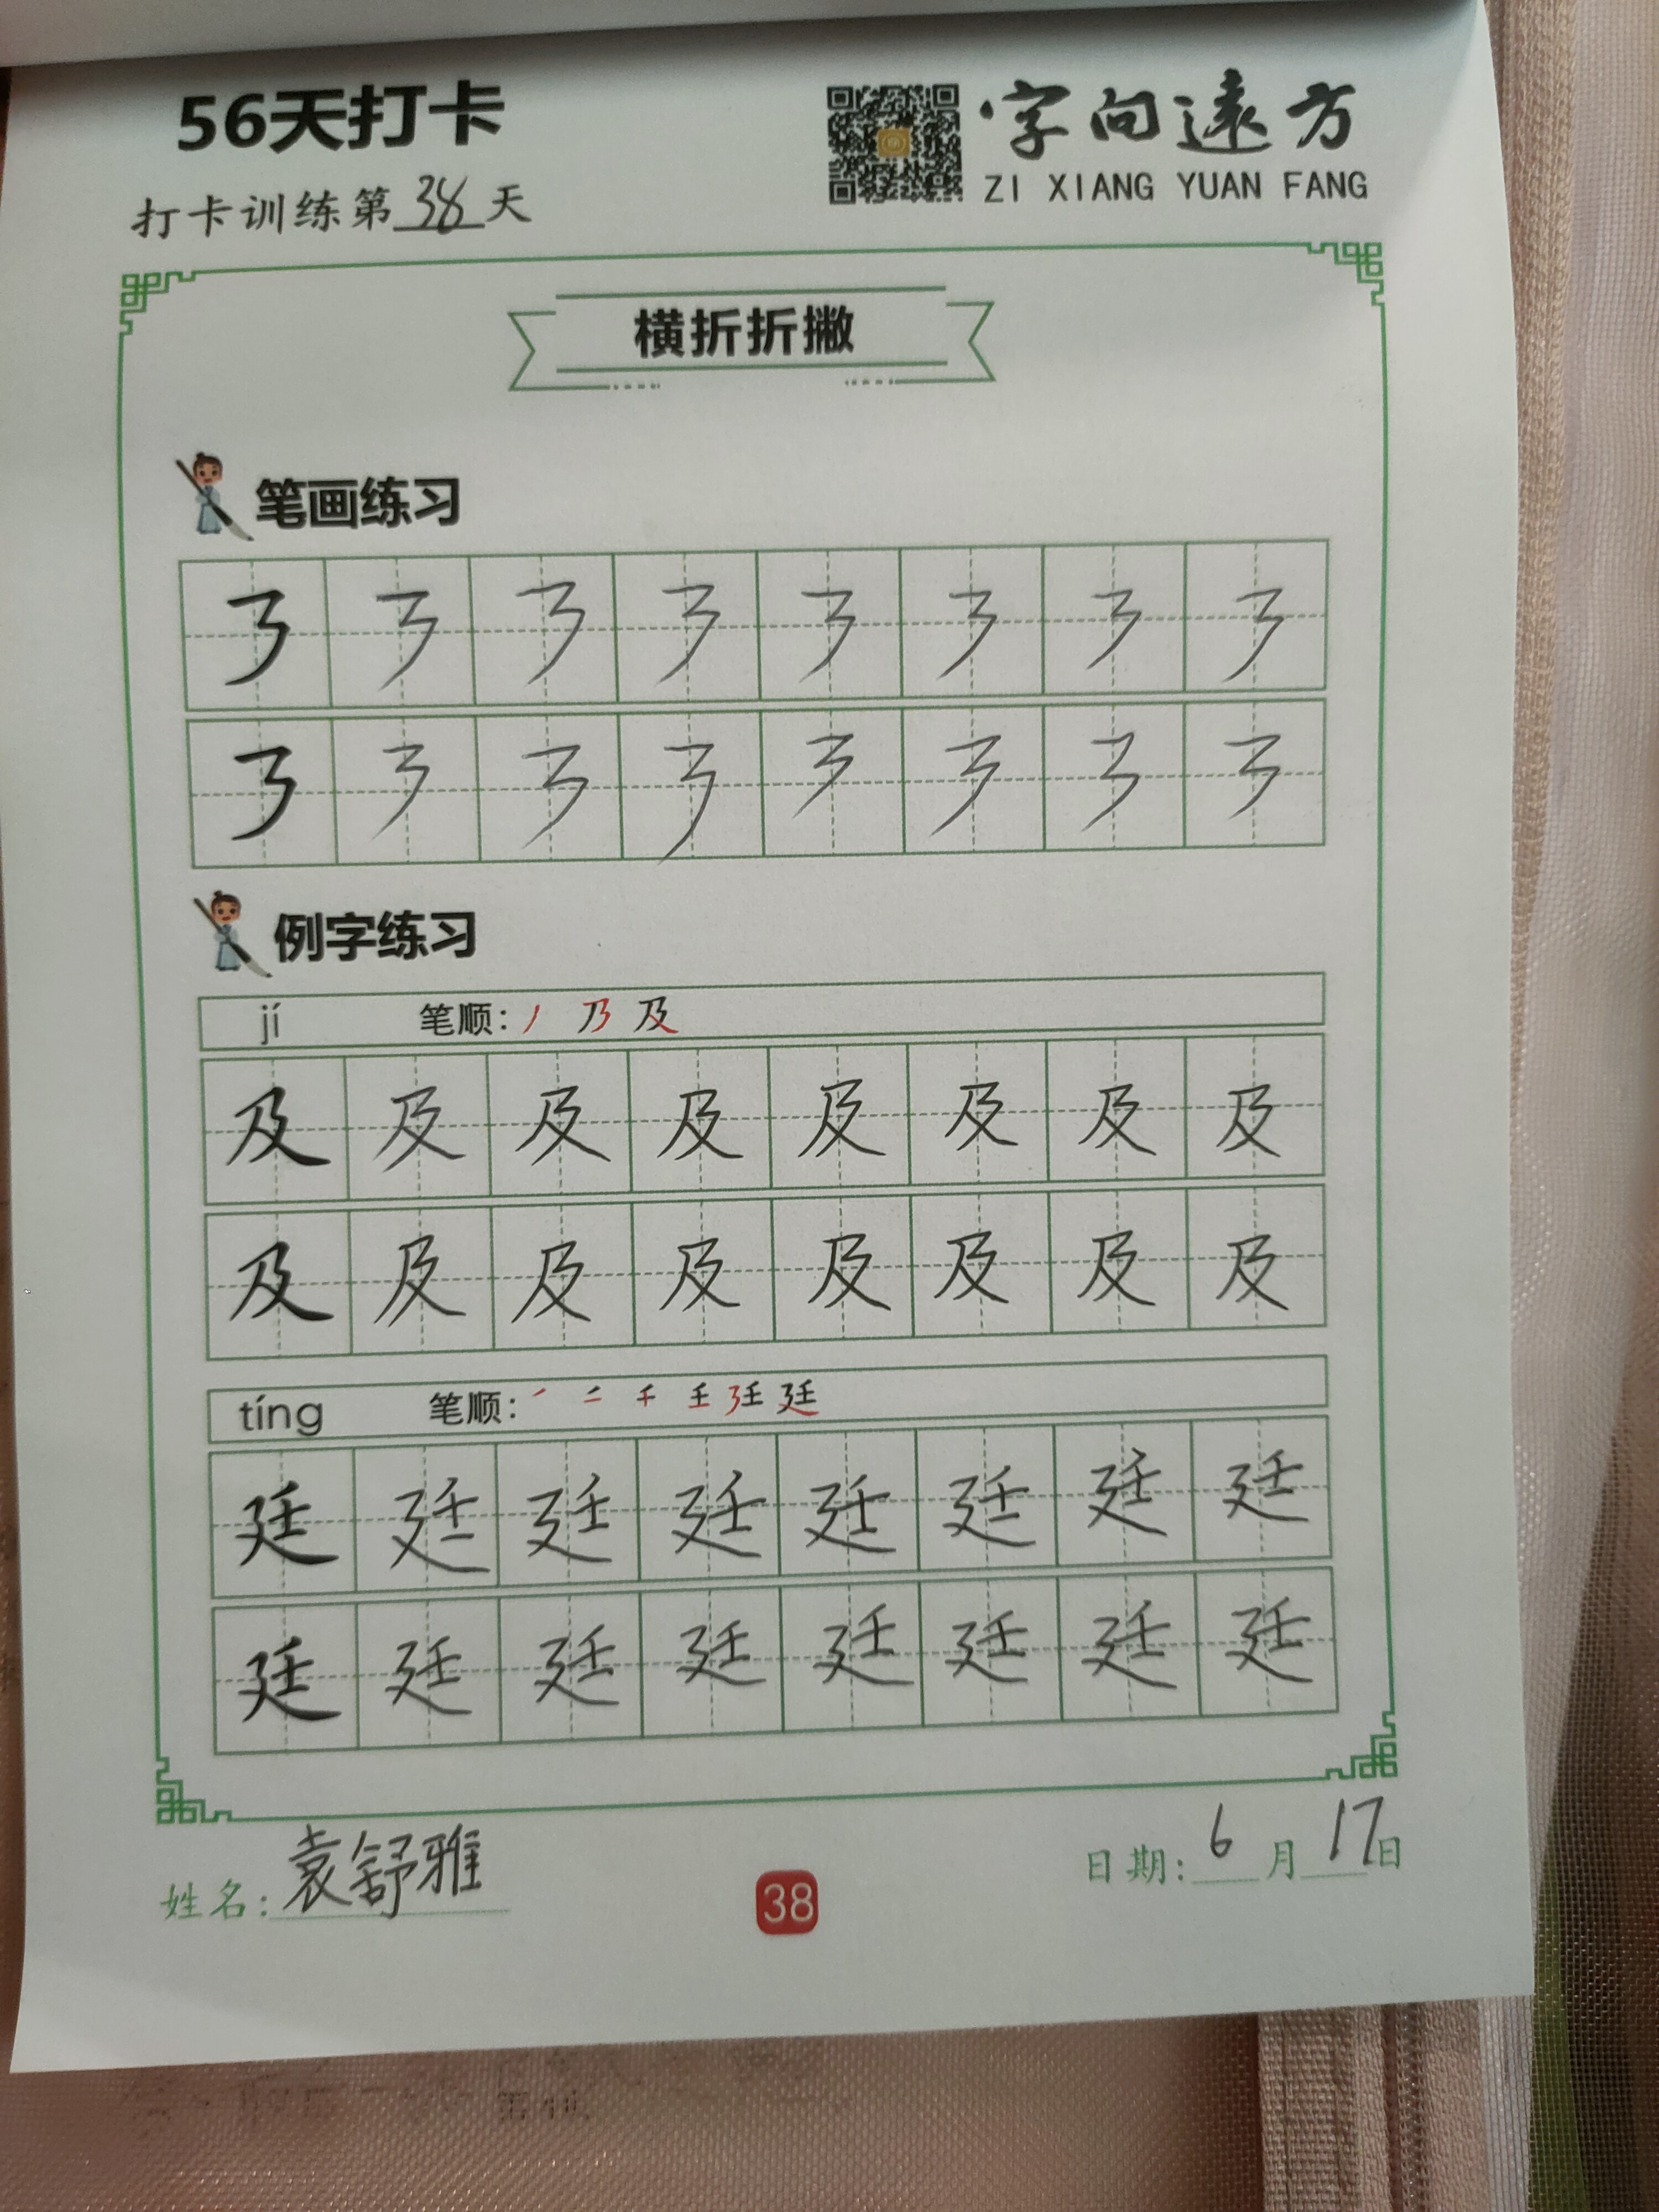 56天打卡
字向遠方
ZI XIANG YUAN FANG
打卡训练第38天
横折折撇
笔画练习
例字练习
jí 笔顺: 丿 乃 及
及 及 及 及 及 及 及 及
及 及 及 及 及 及 及 及
tíng 笔顺: ㇒ 二 千 壬 廷 廷
廷 廷 廷 廷 廷 廷 廷 廷
廷 廷 廷 廷 廷 廷 廷 廷
姓名: 袁舒雅
38
日期: 6月17日